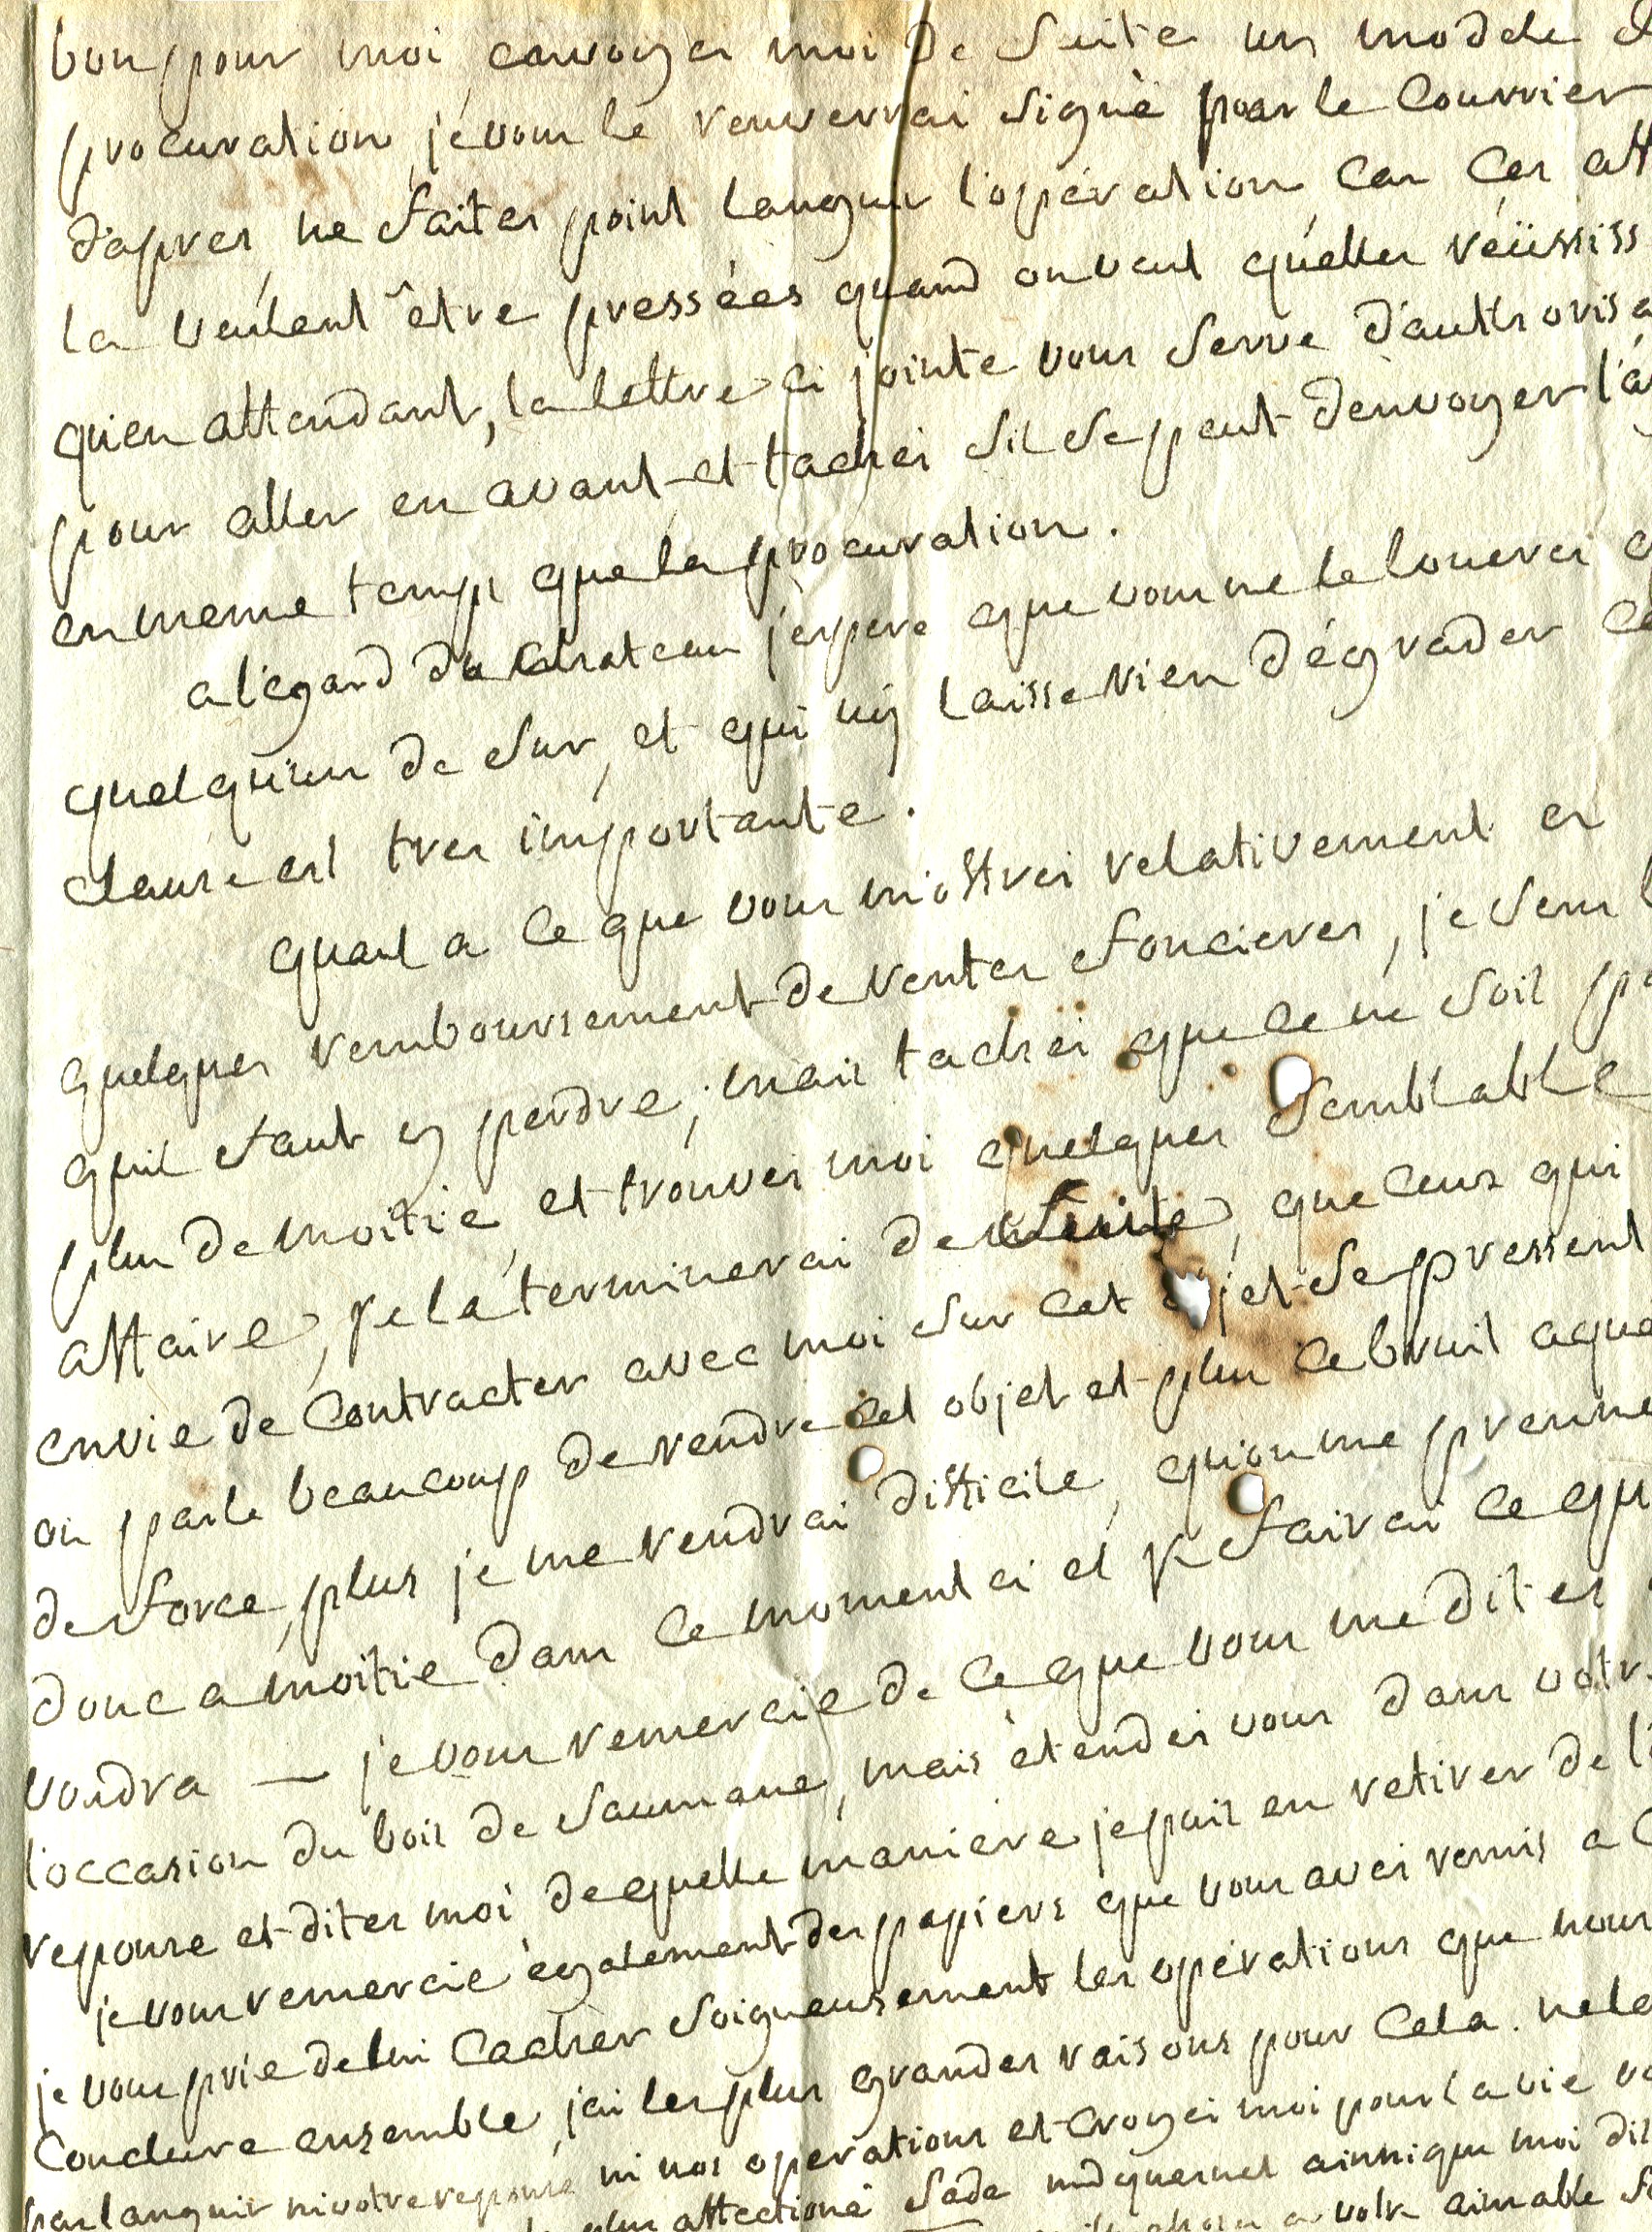 bon pour moi envoyez moi de suite un modele
procuration, je vous le renverrai signé par le courrier
d'apres ne faites point languir l'opération car ces aff
la veulent être pressées quand on veut qu'elles réüssiss
qu'en attendant, la lettre ci jointe vous serve d'authoris
pour aller en avant et tachéz s'il se peut d'envoyer l'a
en meme temps que la procuration.
a l'égard du chateau j'espere que vous ne le louerez
quelqu'un de sur, et qui n'y laisse rien dégrader ce
clause est tres importante.
quant a ce que vous m'offrez relativement es
quelques remboursement de rentes foncieres, je sens
qu'il faut y perdre, mais tachéz que ce ne soit pa
plus de moitié, et trouvez moi quelques semblable
affaire, je la terminerai de suite, que ceux qui
envie de contracter avec moi sur cet objet se pressent
on parle beaucoup de rendre cet objet et plus ce bruit aque
de force, plus je me rendrai difficile, qu'on me prenne
donc a moitié dans ce moment ci et je fairai ce qu
voudra — je vous remercie de ce que vous me dites
l'occasion du bois de saumane, mais étendéz vous dans votr
reponse et dites moi de quelle maniere je puis en retirer de l
je vous remercie également des papiers que vous avez remis a
je vous prie de lui cacher soigneusement les opérations que nous
conclure ensemble, j'ai les plus grandes raisons pour cela. ne la
pas languir ni votre reponse ni nos opérations et croyez moi pour la vie vo
plus affectioné Sade md quesnet ainsi que moi
a votre aimable